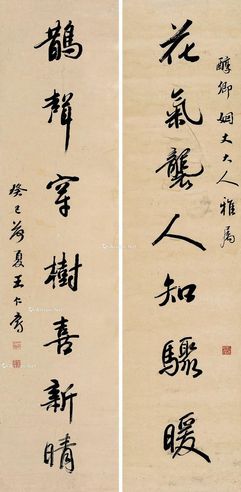 醇卿姻丈大人雅属
花氣龑人知驟暖
鵲聲穿樹喜新晴
癸巳荷夏王仁堪